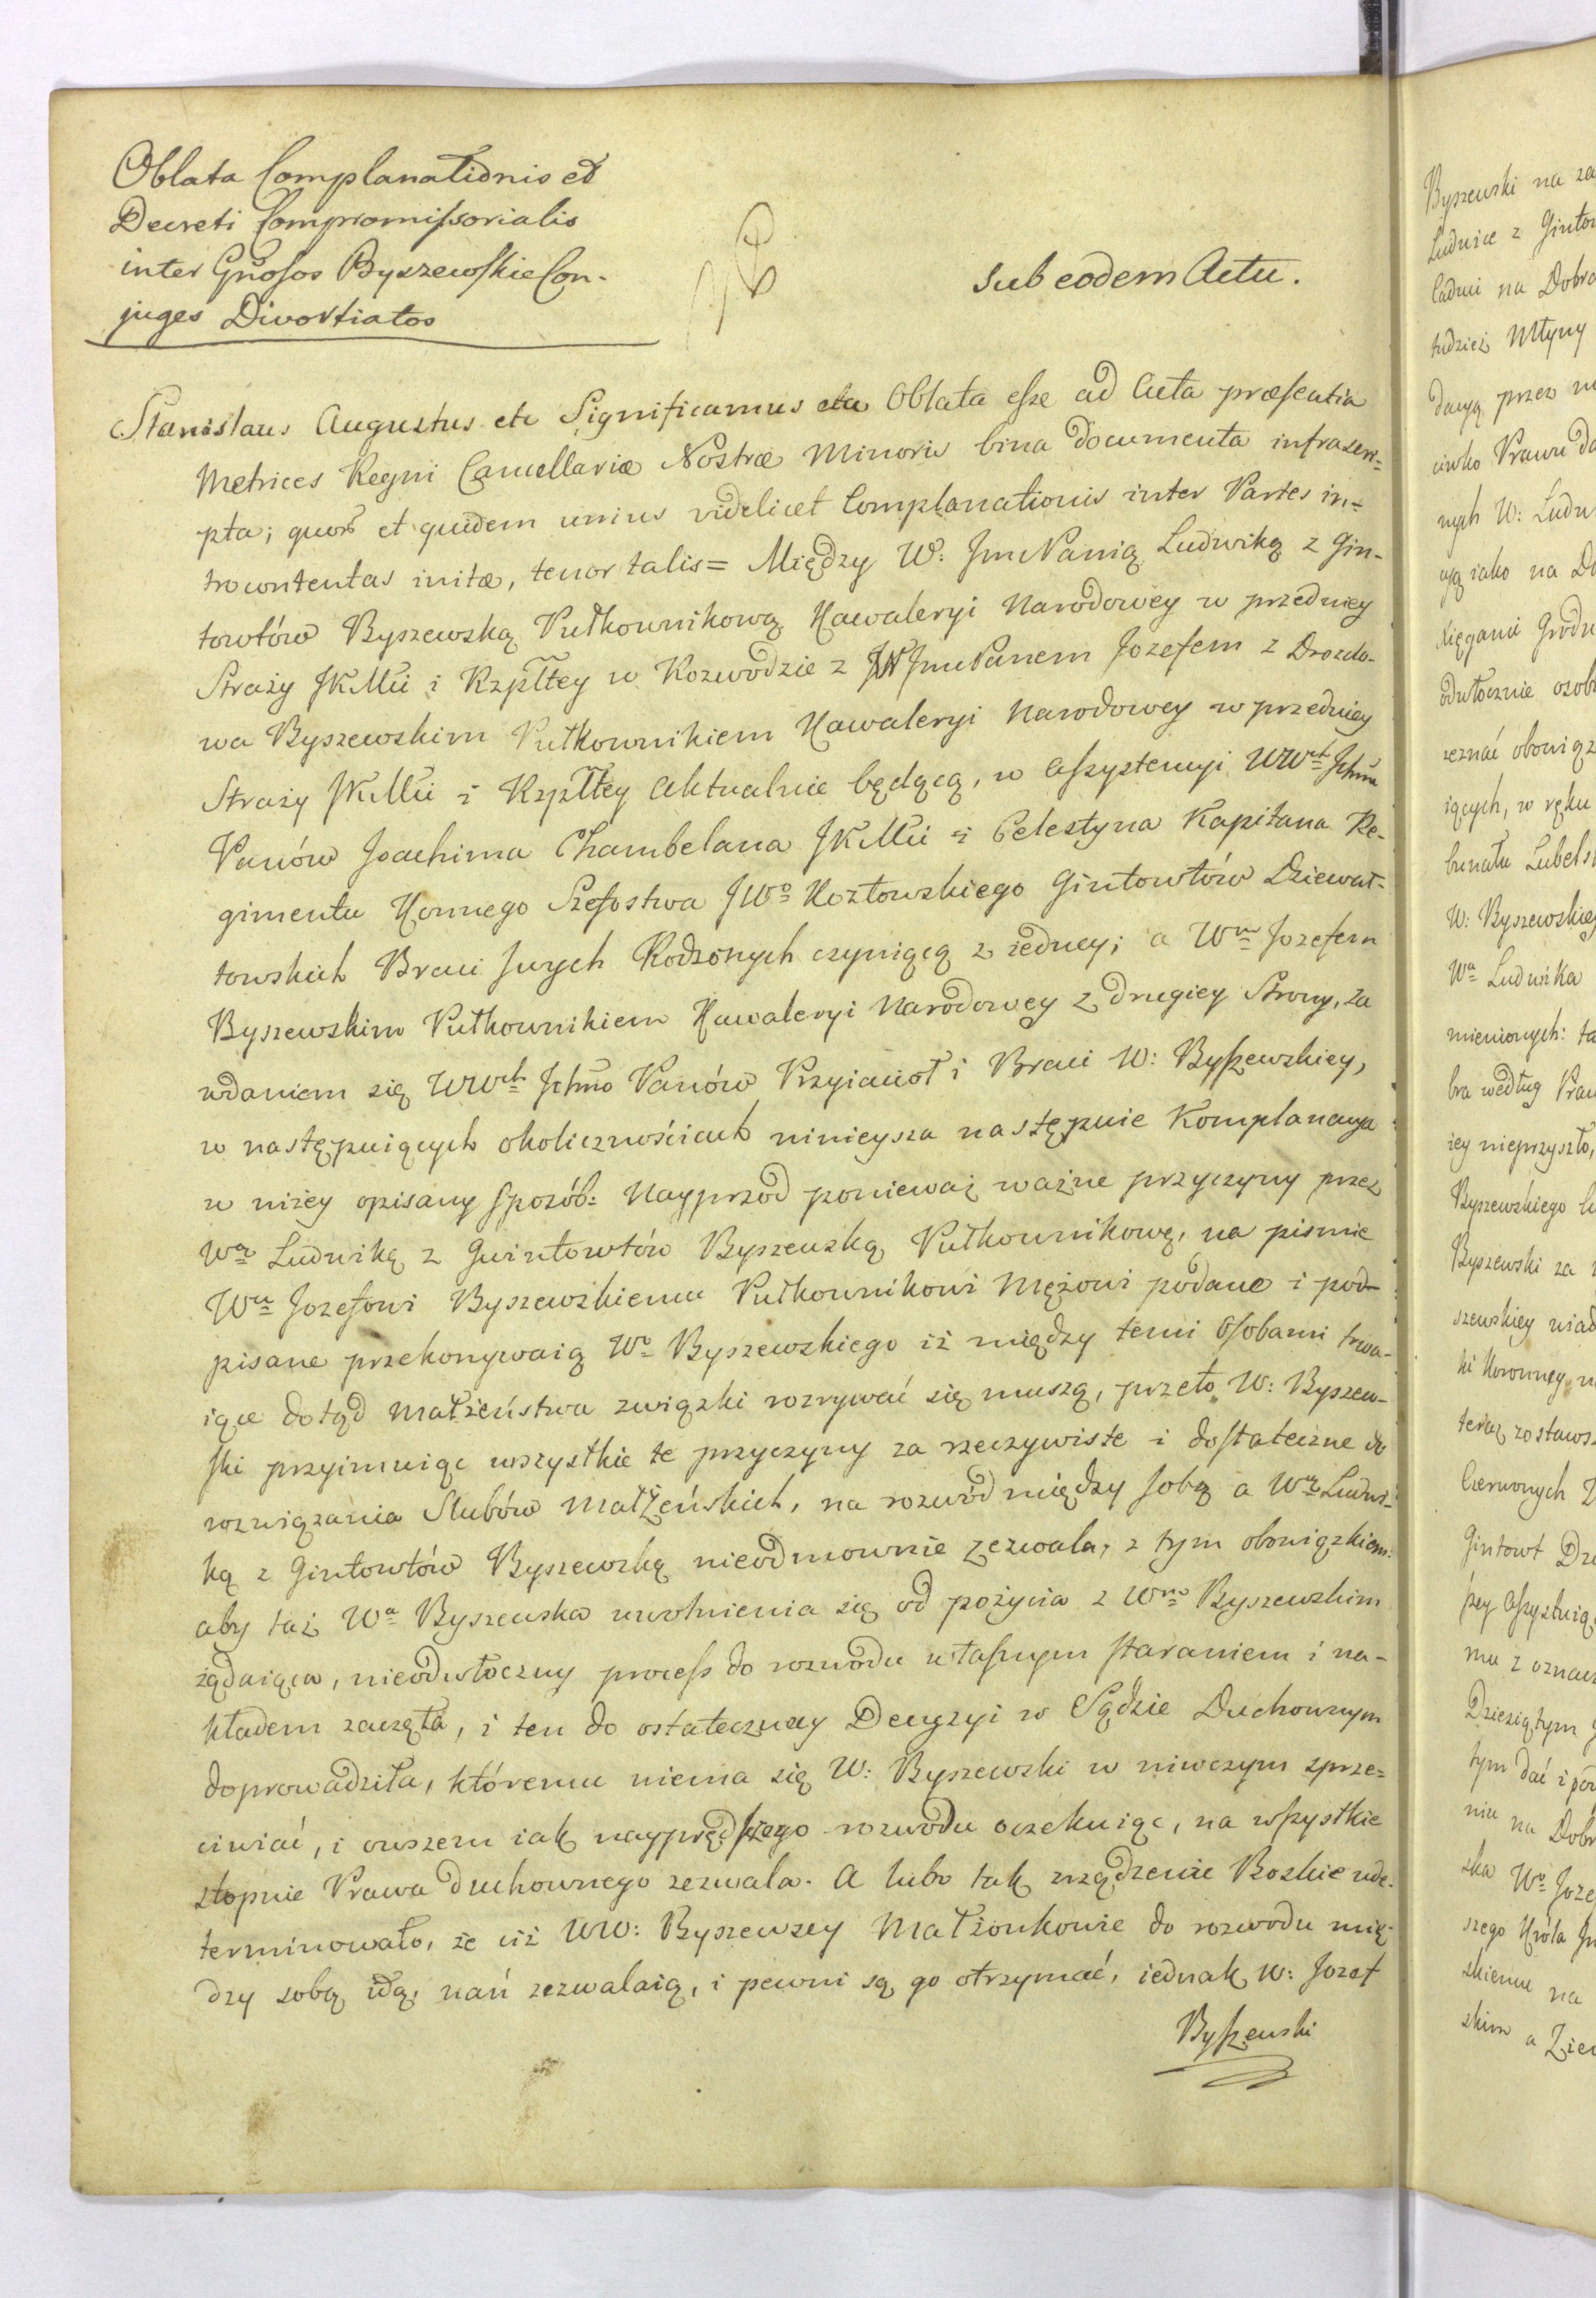 Oblata Complanationis et
Decreti Compromissorialis
inter Gñosos Byszewskie Con-
juges Divortiatos
Sub eodem Actu.
Stanislaus Augustus etc Significamus etc Oblata esse ad Acta præsentia
Metrices Regni Cancellariæ Nostræ Minoris bina documenta infrascri=
pta; quorũ et quidem unius videlicet Complanationis inter Partes in=
trocontentas initæ, tenor talis = Między W: Jmc Panią Ludwiką z Gin-
towtów Byszewską Pułkownikową Kawaleryi Narodowey w przedniey
Straży JKMci i Rzpltey w Rozwodzie z JW Jmc Panem Jozefem z Drozdo-
wa Byszewskim Pułkownikiem Kawaleryi Narodowey w przedniey
Straży JKMci i Rzpltey Aktualnie będącą, w Assystencyi WWch Jchmć
Panów Joachima Chambelana JKMci i Celestyna Kapitana Re-
gimentu Konnego Szefostwa JWo Kozłowskiego Gintowtów Dziewał-
towskich Braci Swych Rodzonych czyniącą z iedney; a Wm Jozefem
Byszewskim Pułkownikiem Kawaleryi Narodowey z drugiey Strony, za
wdaniem się WWch Jchmo Panów Przyiaciół i Braci W: Byszewskiey,
w następuiących okolicznościach ninieysza następuie Komplanacya
w niżey opisany sposób: Nayprzod ponieważ ważne przyczyny przez
Wą Ludwikę z Gwintowtów Byszewską Pułkownikowę, na pismie
Wu Jozefowi Byszewskiemu Pułkownikowi Mężowi podane i pod-
pisane przekonywaią Wo Byszewskiego iż między temi Osobami trwa-
iące dotąd Małżeństwa związki rozrywać się muszą, przeto W: Byszew-
ski przyimuiąc wszystkie te przyczyny za rzeczywiste i dostateczne do
rozwiązania Slubów Małżeńskich, na rozwód między sobą a Wą Ludwi-
ką z Gintowtów Byszewską nieodmownie zezwala, z tym obowiązkiem:
aby taż Wa Byszewska uwolnienia się od pożycia z Wm Byszewskim
żądaiąca, nieodwłoczny process do rozwodu własnym staraniem i na-
kładem zaczęła, i ten do ostateczney Decyzyi w Sądzie Duchownym
doprowadziła, któremu niema się W: Byszewski w niwczym sprze=
ciwiać, i owszem iak nayprędszego rozwodu oczekuiąc, na wszystkie
stopnie Prawa duchownego zezwala. A lubo tak zrządzenie Boskie ude-
terminowało, że ciż WW: Byszewscy Małżonkowie do rozwodu mię-
dzy sobą idą, nań zezwalaią, i pewni są go otrzymać, iednak W: Jozef
Byszewski
Byszewski na
Ludwice z Gintow
na Dobra
tudzież Młyny
przez
Prawu
nych W: Ludw
iako na Do
Xięgami Grodz
odwłocznie osob
zeznać obowiąz
iących, w ręku
bunału Lubels
W: Byszewskie
Wa Ludwika
mienionych: ta
bra według Praw
iey nieprzyszło,
Byszewskiego
Byszewski za
szewskiey
ki Koronney
teraz zostaws
Czerwonych
Gintowt Dz
mu z oznacz
Dziesiątym
tym dać i
niu na Dobr
ska Wo Joze
szego Króla
skiemu na
skim a Ziem